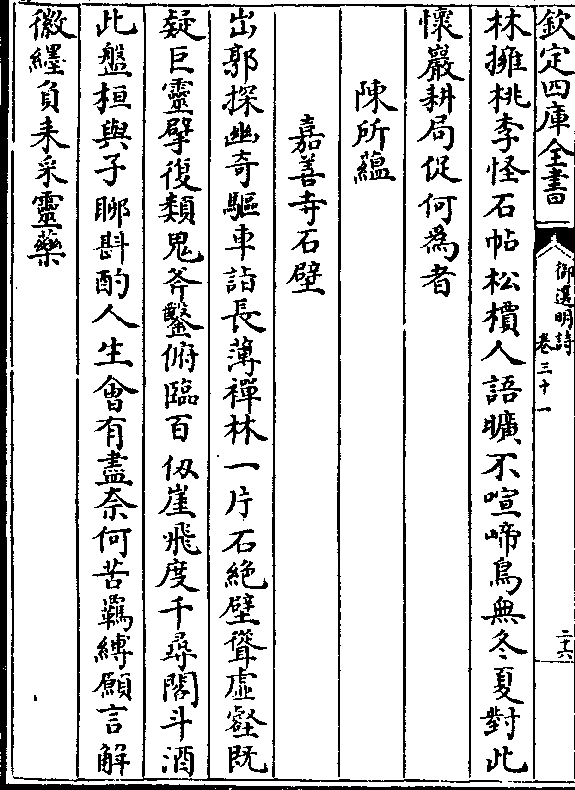 欽定四庫全書
御選明詩
卷三十一
二十六
林擁桃李怪石帖松檟人語曠不喧啼鳥無冬夏對此
懷巖耕局促何爲者
陳所蘊
嘉善寺石壁
出郭探幽奇驅車詣長薄禪林一片石絶壁聳虛壑旣
疑巨靈擘復類鬼斧鑿俯臨百仭崖飛度千尋閣斗酒
此盤桓與子聊斟酌人生會有盡奈何苦羈縛願言解
徽纆負耒采靈藥